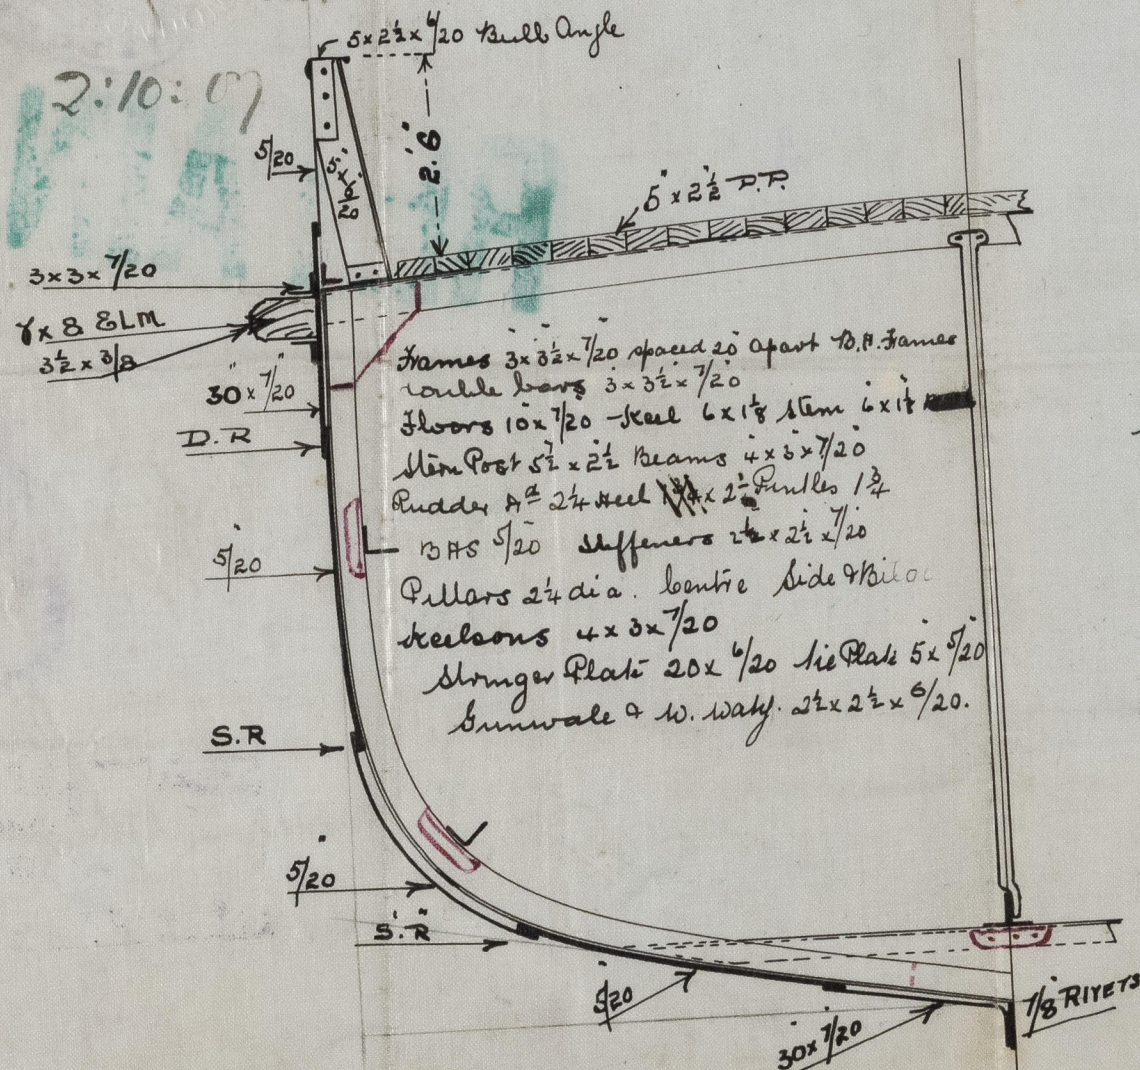 5 x 2½ x 6/20 Bulb Angle
2:10:07
5/20
5" x 6/20
2'.6"
5" x 2½ P.P.
3 x 3 x 7/20
x 8 ELM
3½ x 3/8
30" x 7/20
D.R
Frames 3 x 3½ x 7/20 spaced 20 apart B.H. Frames
double bars 3 x 3½ x 7/20
Floors 10 x 7/20 - Keel 6 x 1⅛ Stem 6 x 1⅛
Stern Post 5½ x 2½ Beams 4 x 3 x 7/20
Rudder Hd 2¼ Heel x 2½ Pintles 1¾
5/20
BHS 5/20 Stiffeners 2½ x 2½ x 7/20
Pillars 2¼ dia. Centre Side & Bilge
Keelsons 4 x 3 x 7/20
Stringer Plate 20 x 6/20 tie Plate 5 x 5/20
Gunwale & W. Waty. 2½ x 2½ x 6/20.
S.R
5/20
S.R
5/20
30 x 7/20
7/8 RIVETS